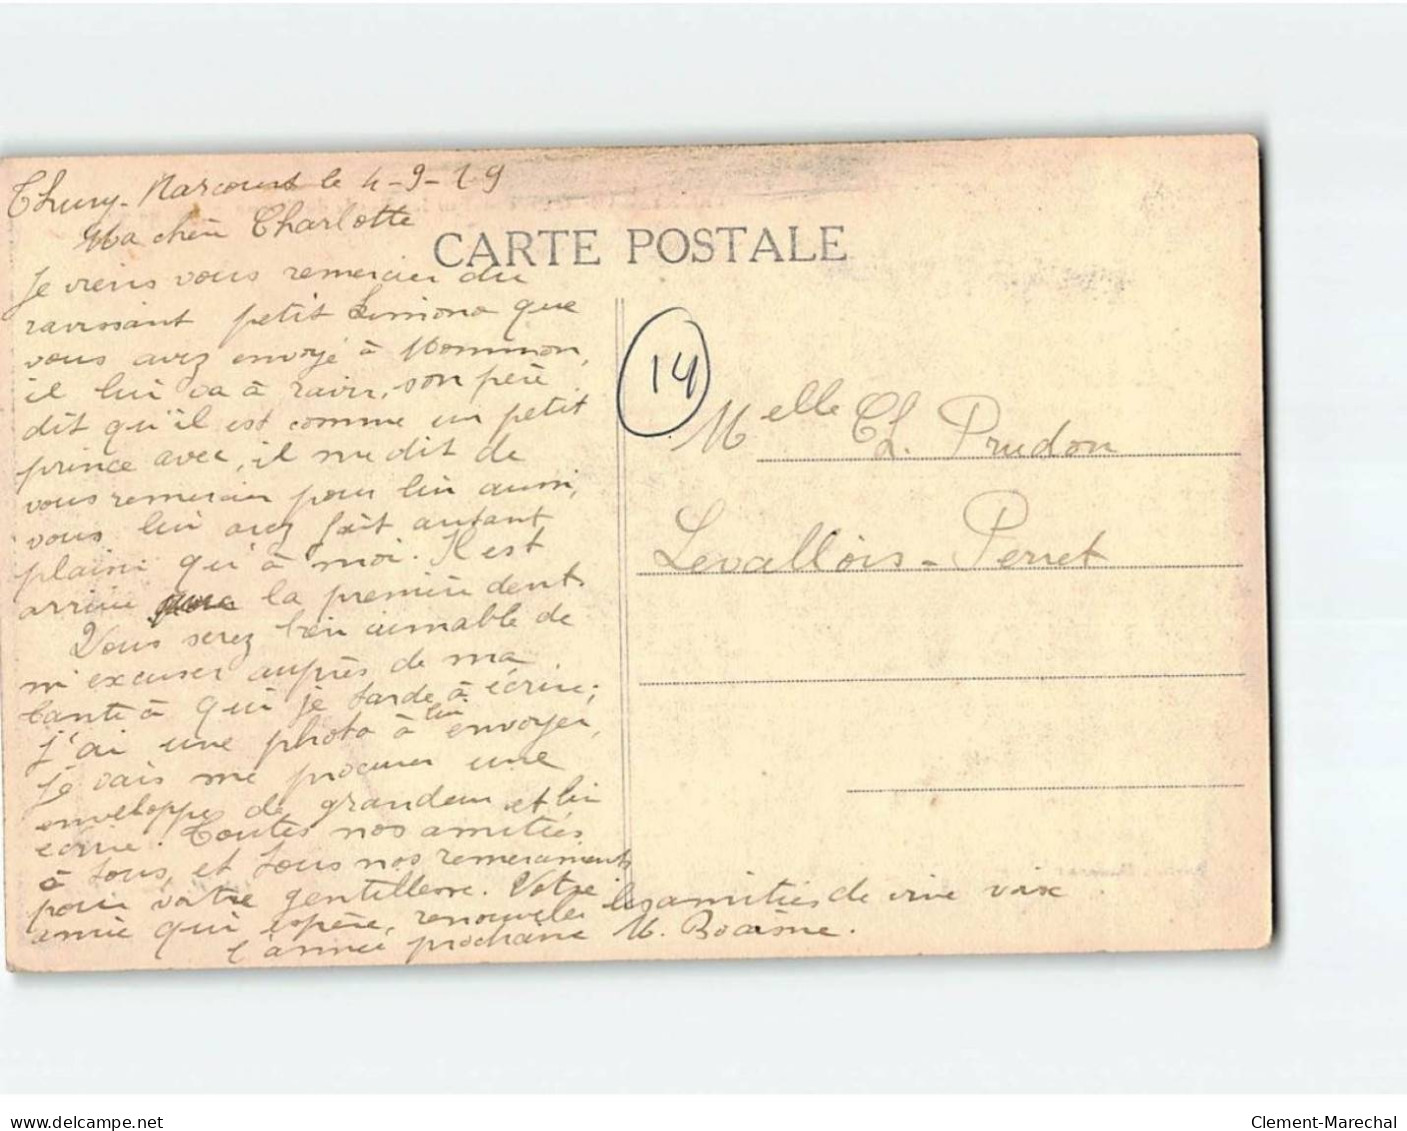 Thury-Harcourt le 4-9-19
Ma chère Charlotte
CARTE POSTALE
Je viens vous remercier du
ravissant petit kimono que
vous avez envoyé à Mommon,
il lui va à ravir, son père
dit qu'il est comme un petit
prince avec, il me dit de
vous remercier pour lui aussi,
vous lui avez fait autant
plaisir qu'à moi. Il est
arrivé la première dent.
Vous serez bien aimable de
m'excuser auprès de ma
tante à qui je tarde à écrire;
j'ai une photo à lui envoyer,
je vais me procurer une
enveloppe de grandeur et lui
écrire. Toutes nos amitiés
à tous, et tous nos remerciements
pour votre gentillesse. Votre
amie qui espère, renouveler les amitiés de vive voix
l'année prochaine M. Boärne.
14
Melle Ch. Prudon
Levallois-Perret
Clement-Marechal
www.delcampe.net